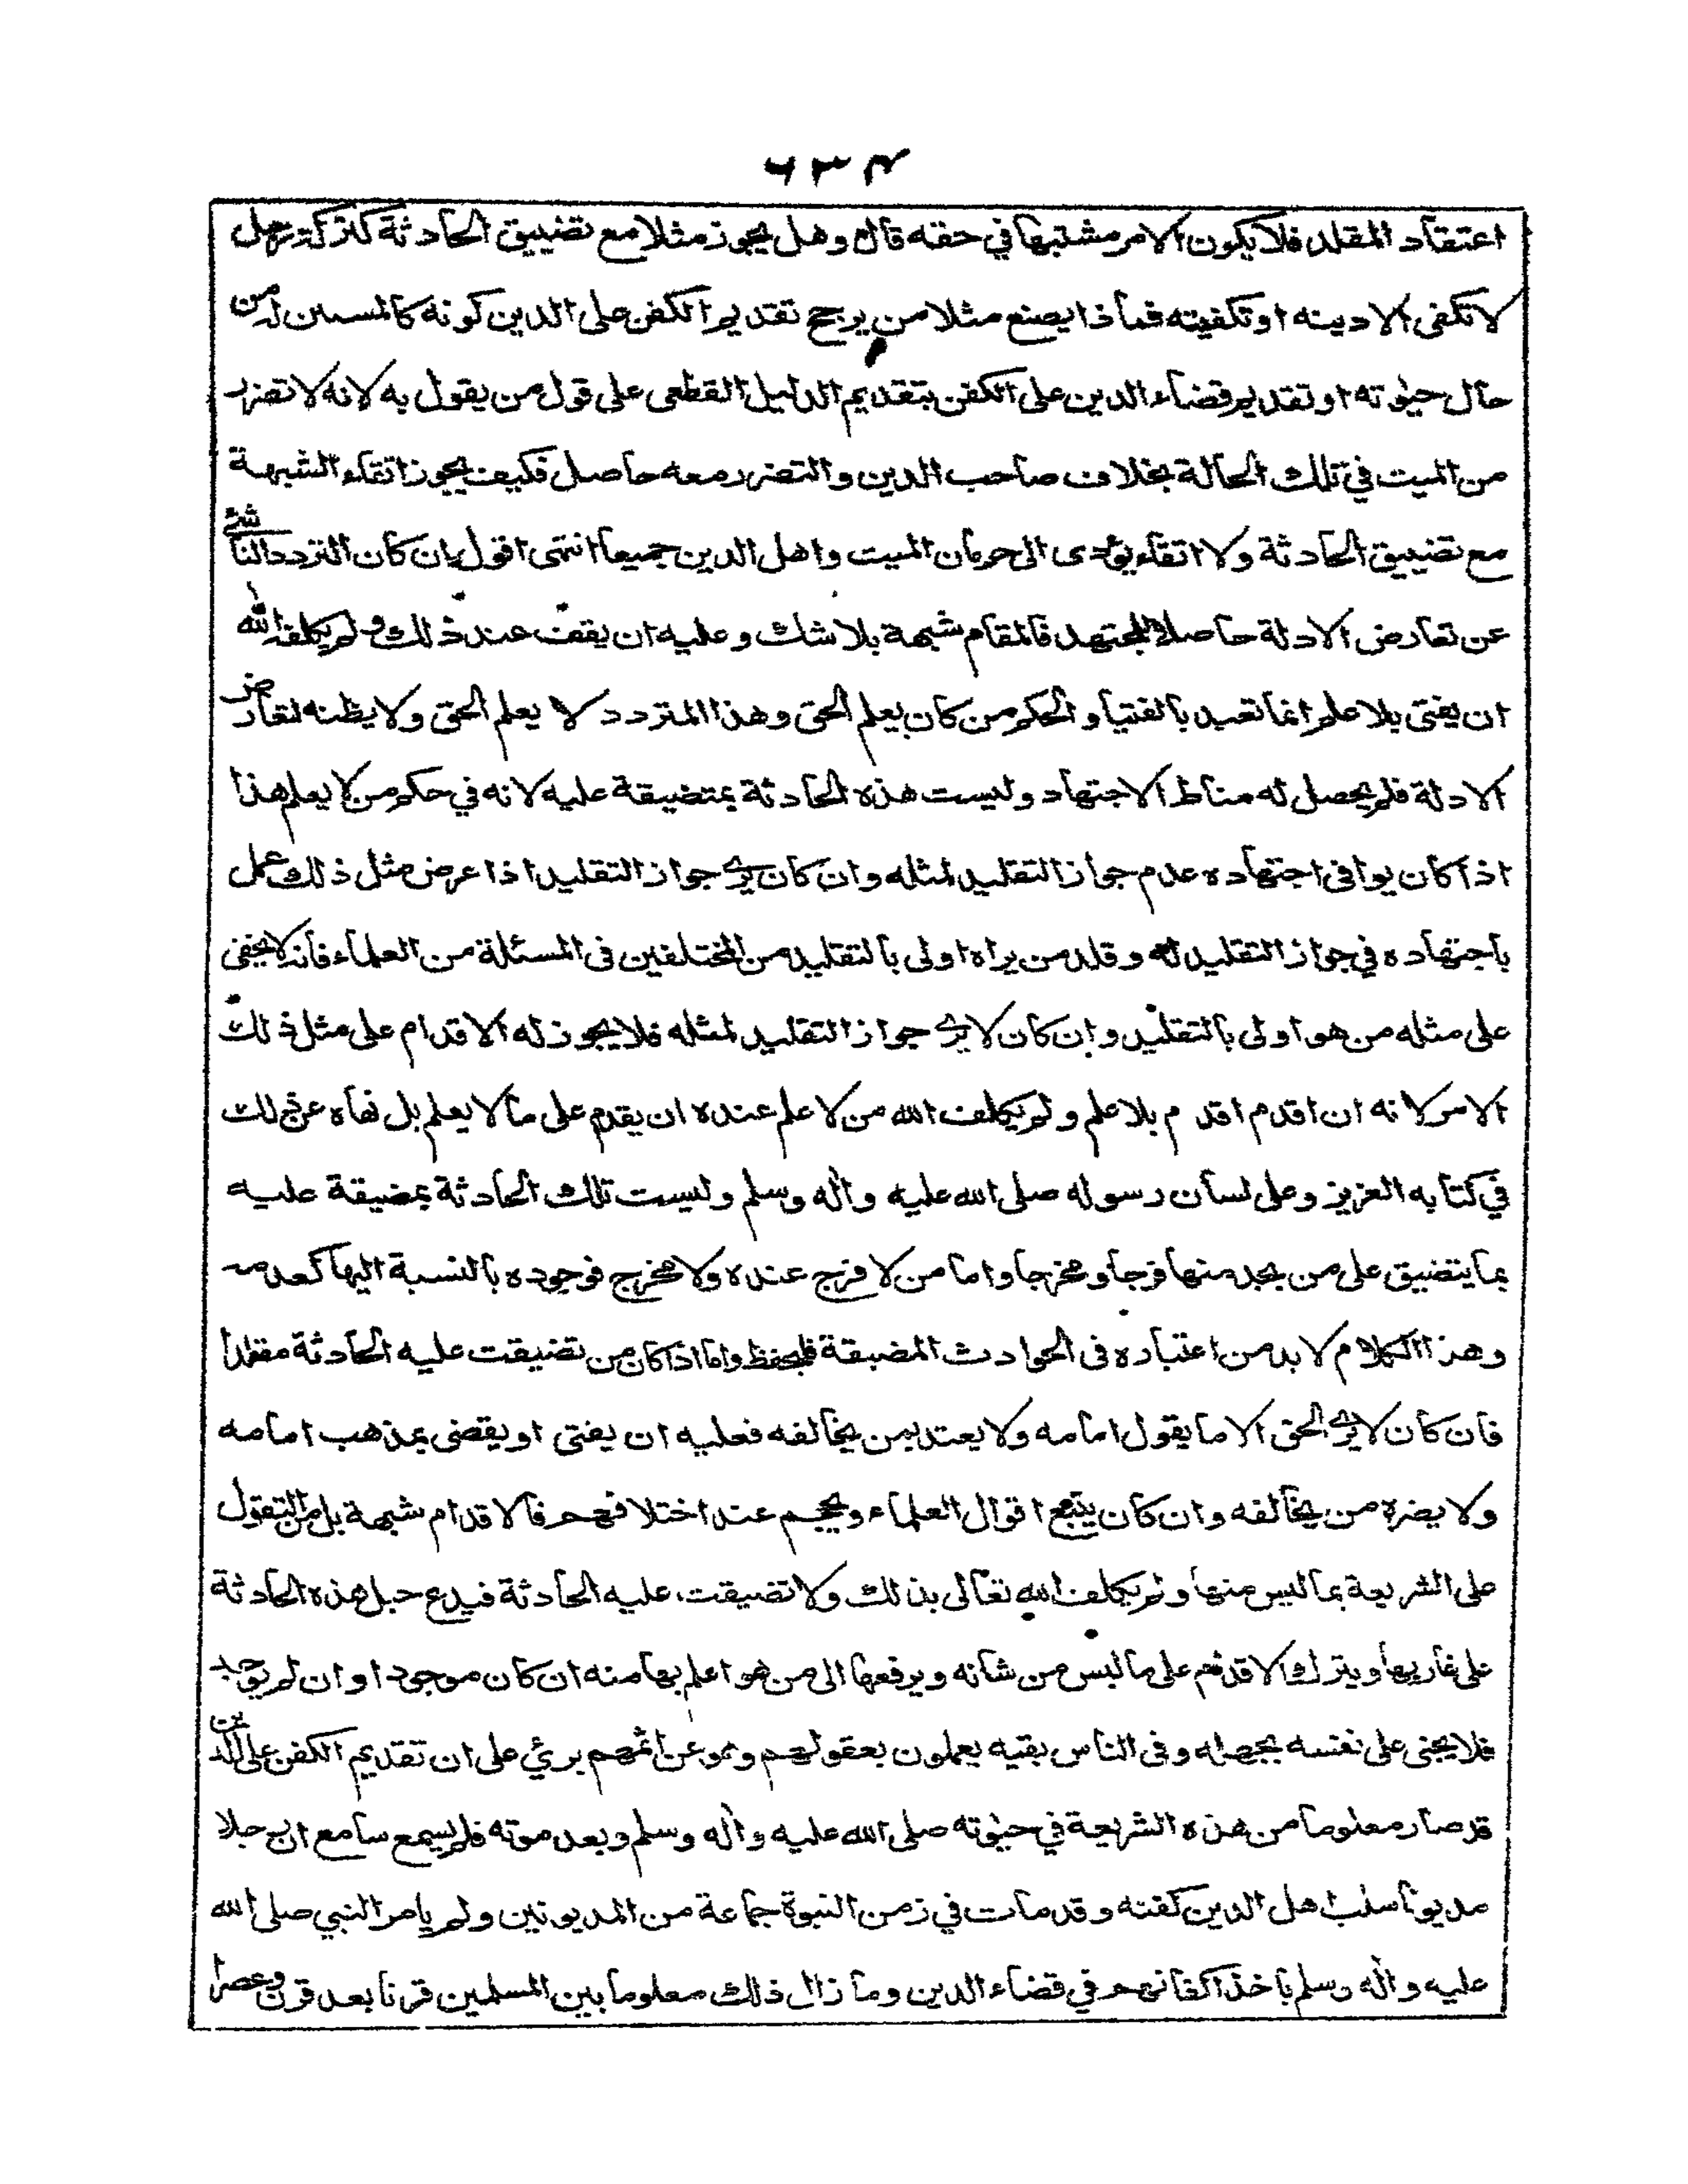 ٦٣٤
اعتقاد المقلد فلا يكون الامر مشتبها في حقه قال وهل يجوز مثلا مع تضييق الحادثة كتركة رجل
لا تكفى الا دينه او تكفينه فماذا يصنع مثلا من يرجح تقديم الكفن على الدين كونه كالمستثنى له من
حال حيٰوته او تقديم قضاء الدين على الكفن بتقديم الدليل القطعى على قول من يقول به لانه لا تضرر
من الميت في تلك الحالة بخلاف صاحب الدين والتضرر معه حاصل فكيف يجوز اتقاء الشبهة
مع تضييق الحادثة ولا اتقاء يؤدى الى حرمان الميت واهل الدين جميعا انتهى اقول ان كان التردد الناشئ
عن تعارض الادلة حاصلا للمجتهد فالمقام شبهة بلا شك وعليه ان يقف عند ذلك ولم يكلفه الله
ان يفتى بلا علم انما تعبد بالفتيا والحكم من كان يعلم الحق وهذا المتردد لا يعلم الحق ولا يظنه لتعارض
الادلة فلم يحصل له مناط الاجتهاد وليست هذه الحادثة بمتضيقة عليه لانه في حكم من لا يعلم هذا
اذا كان يرا فى اجتهاده عدم جواز التقليد لمثله وان كان يرى جواز التقليد اذا عرض مثل ذلك عمل
باجتهاده في جواز التقليد له وقلد من يراه اولى بالتقليد من المختلفين فى المسئلة من العلماء فانه لا يخفى
على مثله من هو اولى بالتقليد وان كان لا يرى جواز التقليد لمثله فلا يجوز له الاقدام على مثل ذلك
الامر لانه ان اقدم اقدم بلا علم ولم يكلف الله من لا علم عنده ان يقدم على ما لا يعلم بل نهاه عن ذلك
في كتابه العزيز وعلى لسان رسوله صلى الله عليه واٰله وسلم وليست تلك الحادثة بمضيقة عليه
بما يتضيق على من يجد منها فرجا ومخرجا واما من لا فرج عنده ولا مخرج فوجوده بالنسبة اليها كعدمه
وهذا الكلام لا بد من اعتباره فى الحوادث المضيقة فليحفظ واما اذا كان من تضيقت عليه الحادثة مقلدا
فان كان لا يرى الحق الا ما يقول امامه ولا يعتد بمن يخالفه فعليه ان يفتى او يقضى بمذهب امامه
ولا يضره من يخالفه وان كان يتبع اقوال العلماء ويحجم عند اختلافهم فالاقدام شبهة بل من التقول
على الشريعة بما ليس منها ولم يكلفه الله تعالى بذلك ولا تضيقت عليه الحادثة فيدع حبل هذه الحادثة
على غاربها ويترك الاقدام على ما ليس من شانه ويرفعها الى من هو اعلم بها منه ان كان موجودا وان لم يوجد
فلا يجنى على نفسه بجهله وفى الناس بقيه يعملون بعقولهم وهو عن اثمهم برئي على ان تقديم الكفن على الدين
قد صار معلوما من هذه الشريعة في حيٰوته صلى الله عليه واٰله وسلم وبعد موته فلم يسمع سامع ان رجلا
مديونا سلب اهل الدين كفنه وقد مات في زمن النبوة جماعة من المديونين ولم يامر النبي صلى الله
عليه واٰله وسلم باخذ اكفانهم في قضاء الدين وما زال ذلك معلوما بين المسلمين قرنا بعد قرن وعصرا